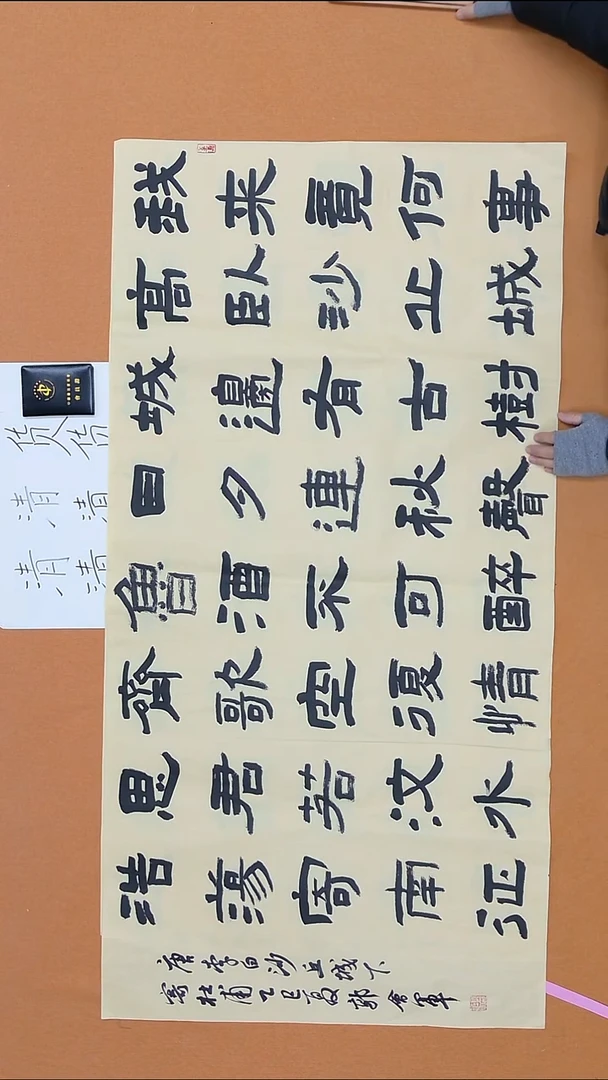 我来竟何事
高臥沙丘城
城邊有古樹
日夕連秋聲
魯酒不可醉
齊歌空復情
思君若汶水
浩蕩寄南征
唐李白沙丘城下
寄杜甫乙巳夏郭會軍
清清
清清